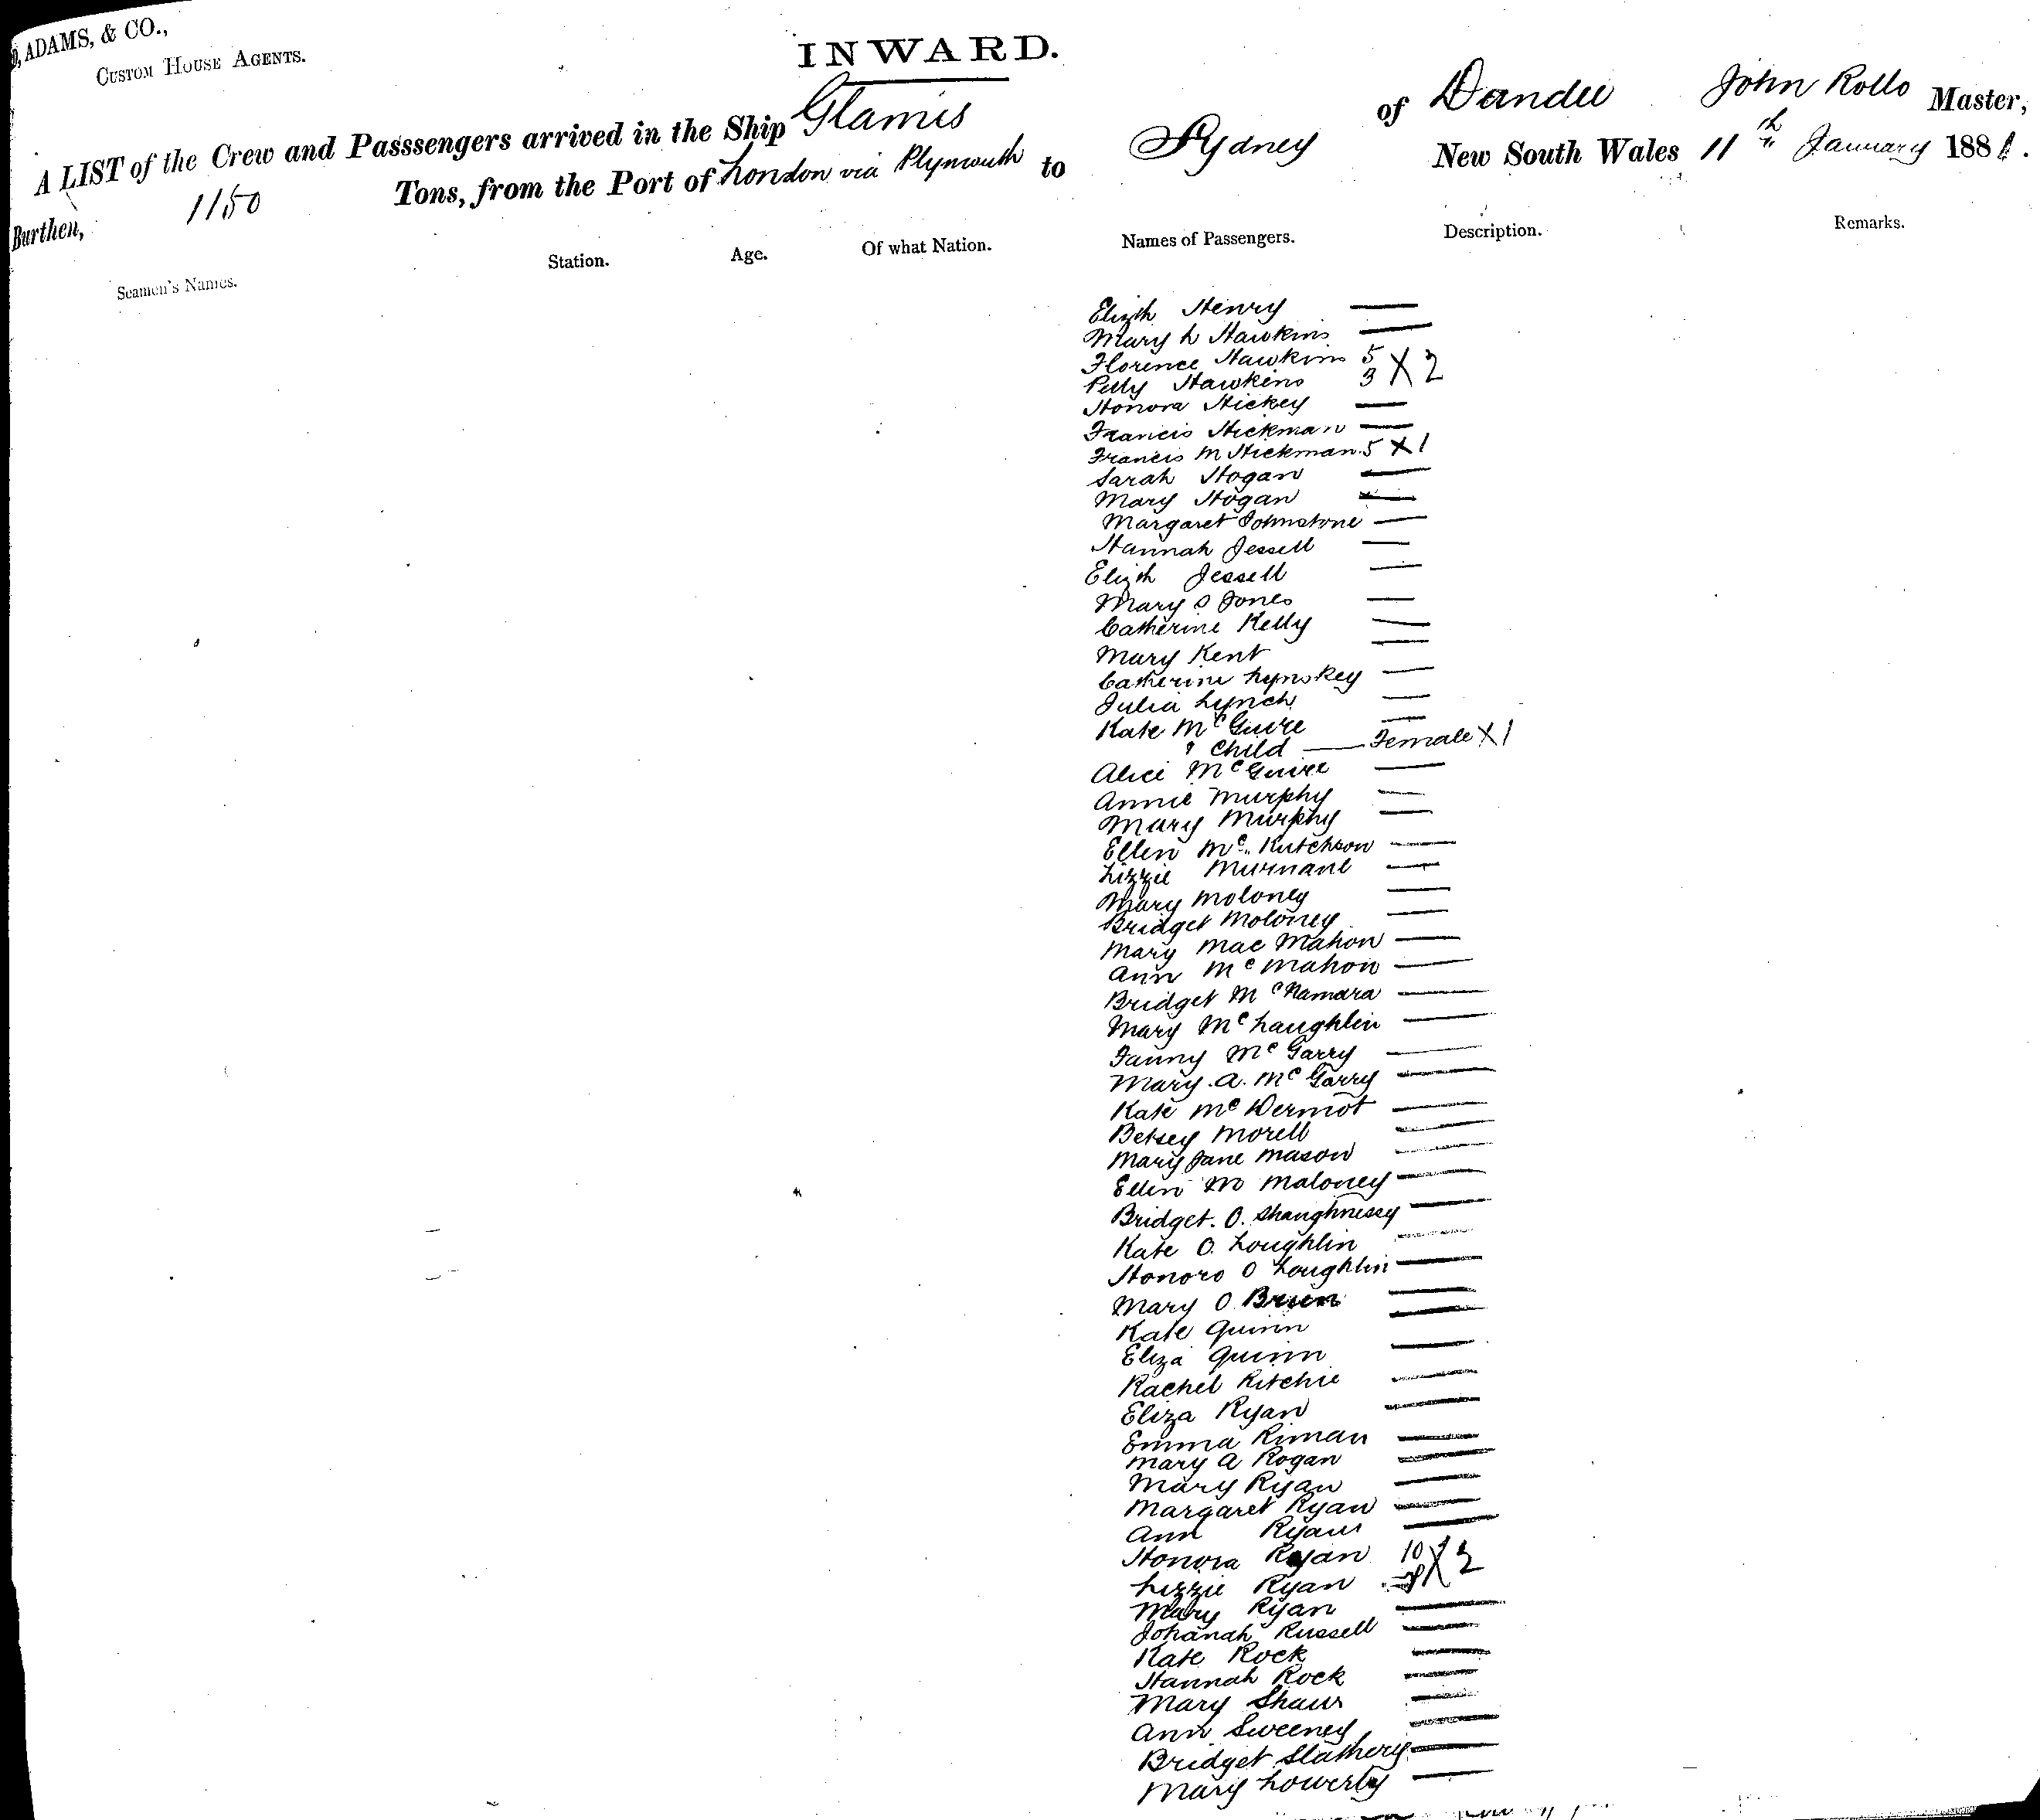 ADAMS, & CO.,
CUSTOM HOUSE AGENTS.
INWARD.
A LIST of the Crew and Passsengers arrived in the Ship Glamis of Dundee John Rollo Master,
Burthen, 1150 Tons, from the Port of London via Plymouth to Sydney New South Wales 11th January 1881.
Seamen's Names. Station. Age. Of what Nation. Names of Passengers. Description. Remarks.
Elizth Henry —
Mary L Hawkins —
Florence Hawkins 5
Polly Hawkins 3 X 2
Honora Hickey —
Francis Hickman —
Francis M Hickman 5 X 1
Sarah Hogan —
Mary Hogan —
Margaret Johnstone —
Hannah Jessell —
Elizth Jessell —
Mary S Jones —
Catherine Kelly —
Mary Kent —
Catherine Lynskey —
Julia Lynch —
Kate McGuire —
& Child — Female X 1
Alice McGuire —
Annie Murphy —
Mary Murphy —
Ellen Mc Kutchson —
Lizzie Murnane —
Mary Moloney —
Bridget Moloney —
Mary Mac Mahon —
Ann McMahon —
Bridget McNamara —
Mary McLaughlin —
Fanny McGarry —
Mary . A. McGarry —
Kate McDermot —
Betsey Morell —
Mary Jane Mason —
Ellen M Maloney —
Bridget. O. Shaughnessy —
Kate O. Loughlin —
Honoro O Loughlin —
Mary O Brien —
Kate Quinn —
Eliza Quinn —
Rachel Ritchie —
Eliza Ryan —
Emma Riman —
Mary A Rogan —
Mary Ryan —
Margaret Ryan —
Ann Ryan —
Honora Ryan 10
Lizzie Ryan X 2
Mary Ryan —
Johanah Russell —
Kate Rock —
Hannah Rock —
Mary Shaw —
Ann Sweeney —
Bridget Slathery —
Mary Lowerty —